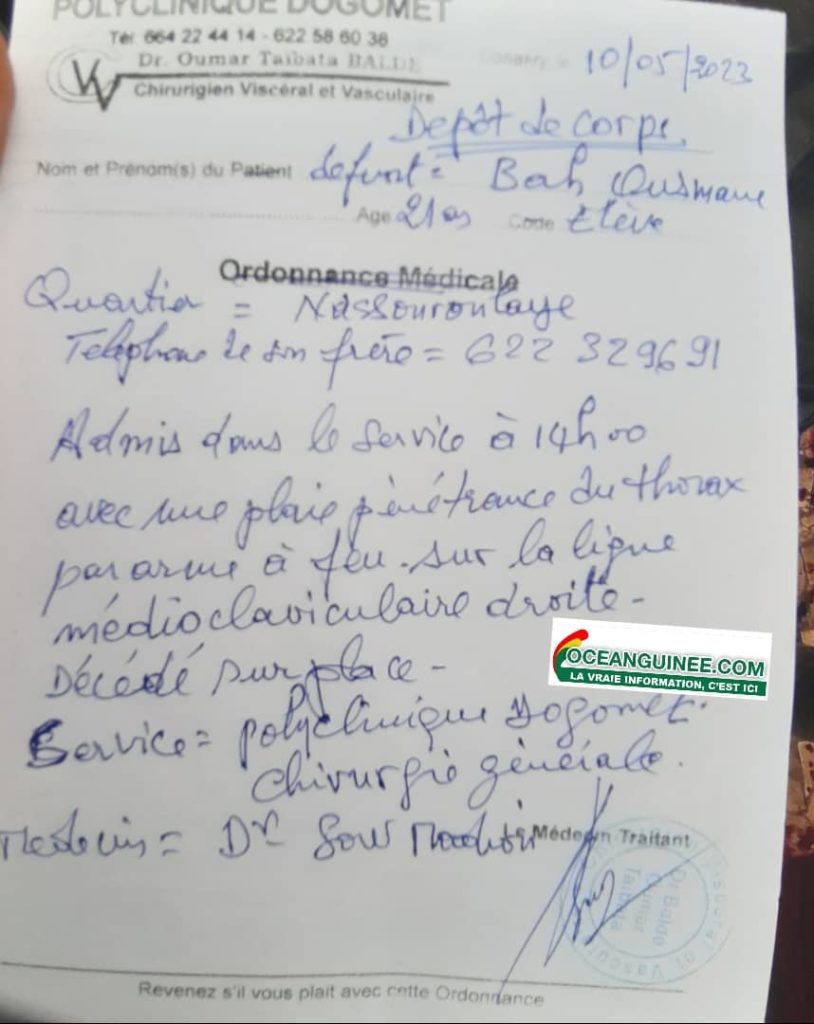 POLYCLINIQUE DOGOMET
Tél 664 22 44 14 - 622 58 60 38
Dr. Oumar Taïbata BALDE
Chirurigien Viscéral et Vasculaire
10/05/2023
Depôt de corps
Nom et Prénom(s) du Patient defunt = Bah Ousmane
Age 21 ans Code Elève
Ordonnance Médicale
Quartier = Nassouroulaye
Telephone de son frère = 622 329691
Admis dans le service à 14h00
avec une plaie pénétrance du thorax
par arme à feu. sur la ligne
médioclaviculaire droite -
Décédé sur place -
OCEANGUINEE.COM
LA VRAIE INFORMATION, C'EST ICI
Service = polyclinique Dogomet.
chirurgie générale.
Medecin = Dr Sow
Le Médecin Traitant
Dr Balde
Oumar
Taibata
Revenez s'il vous plait avec cette Ordonnance